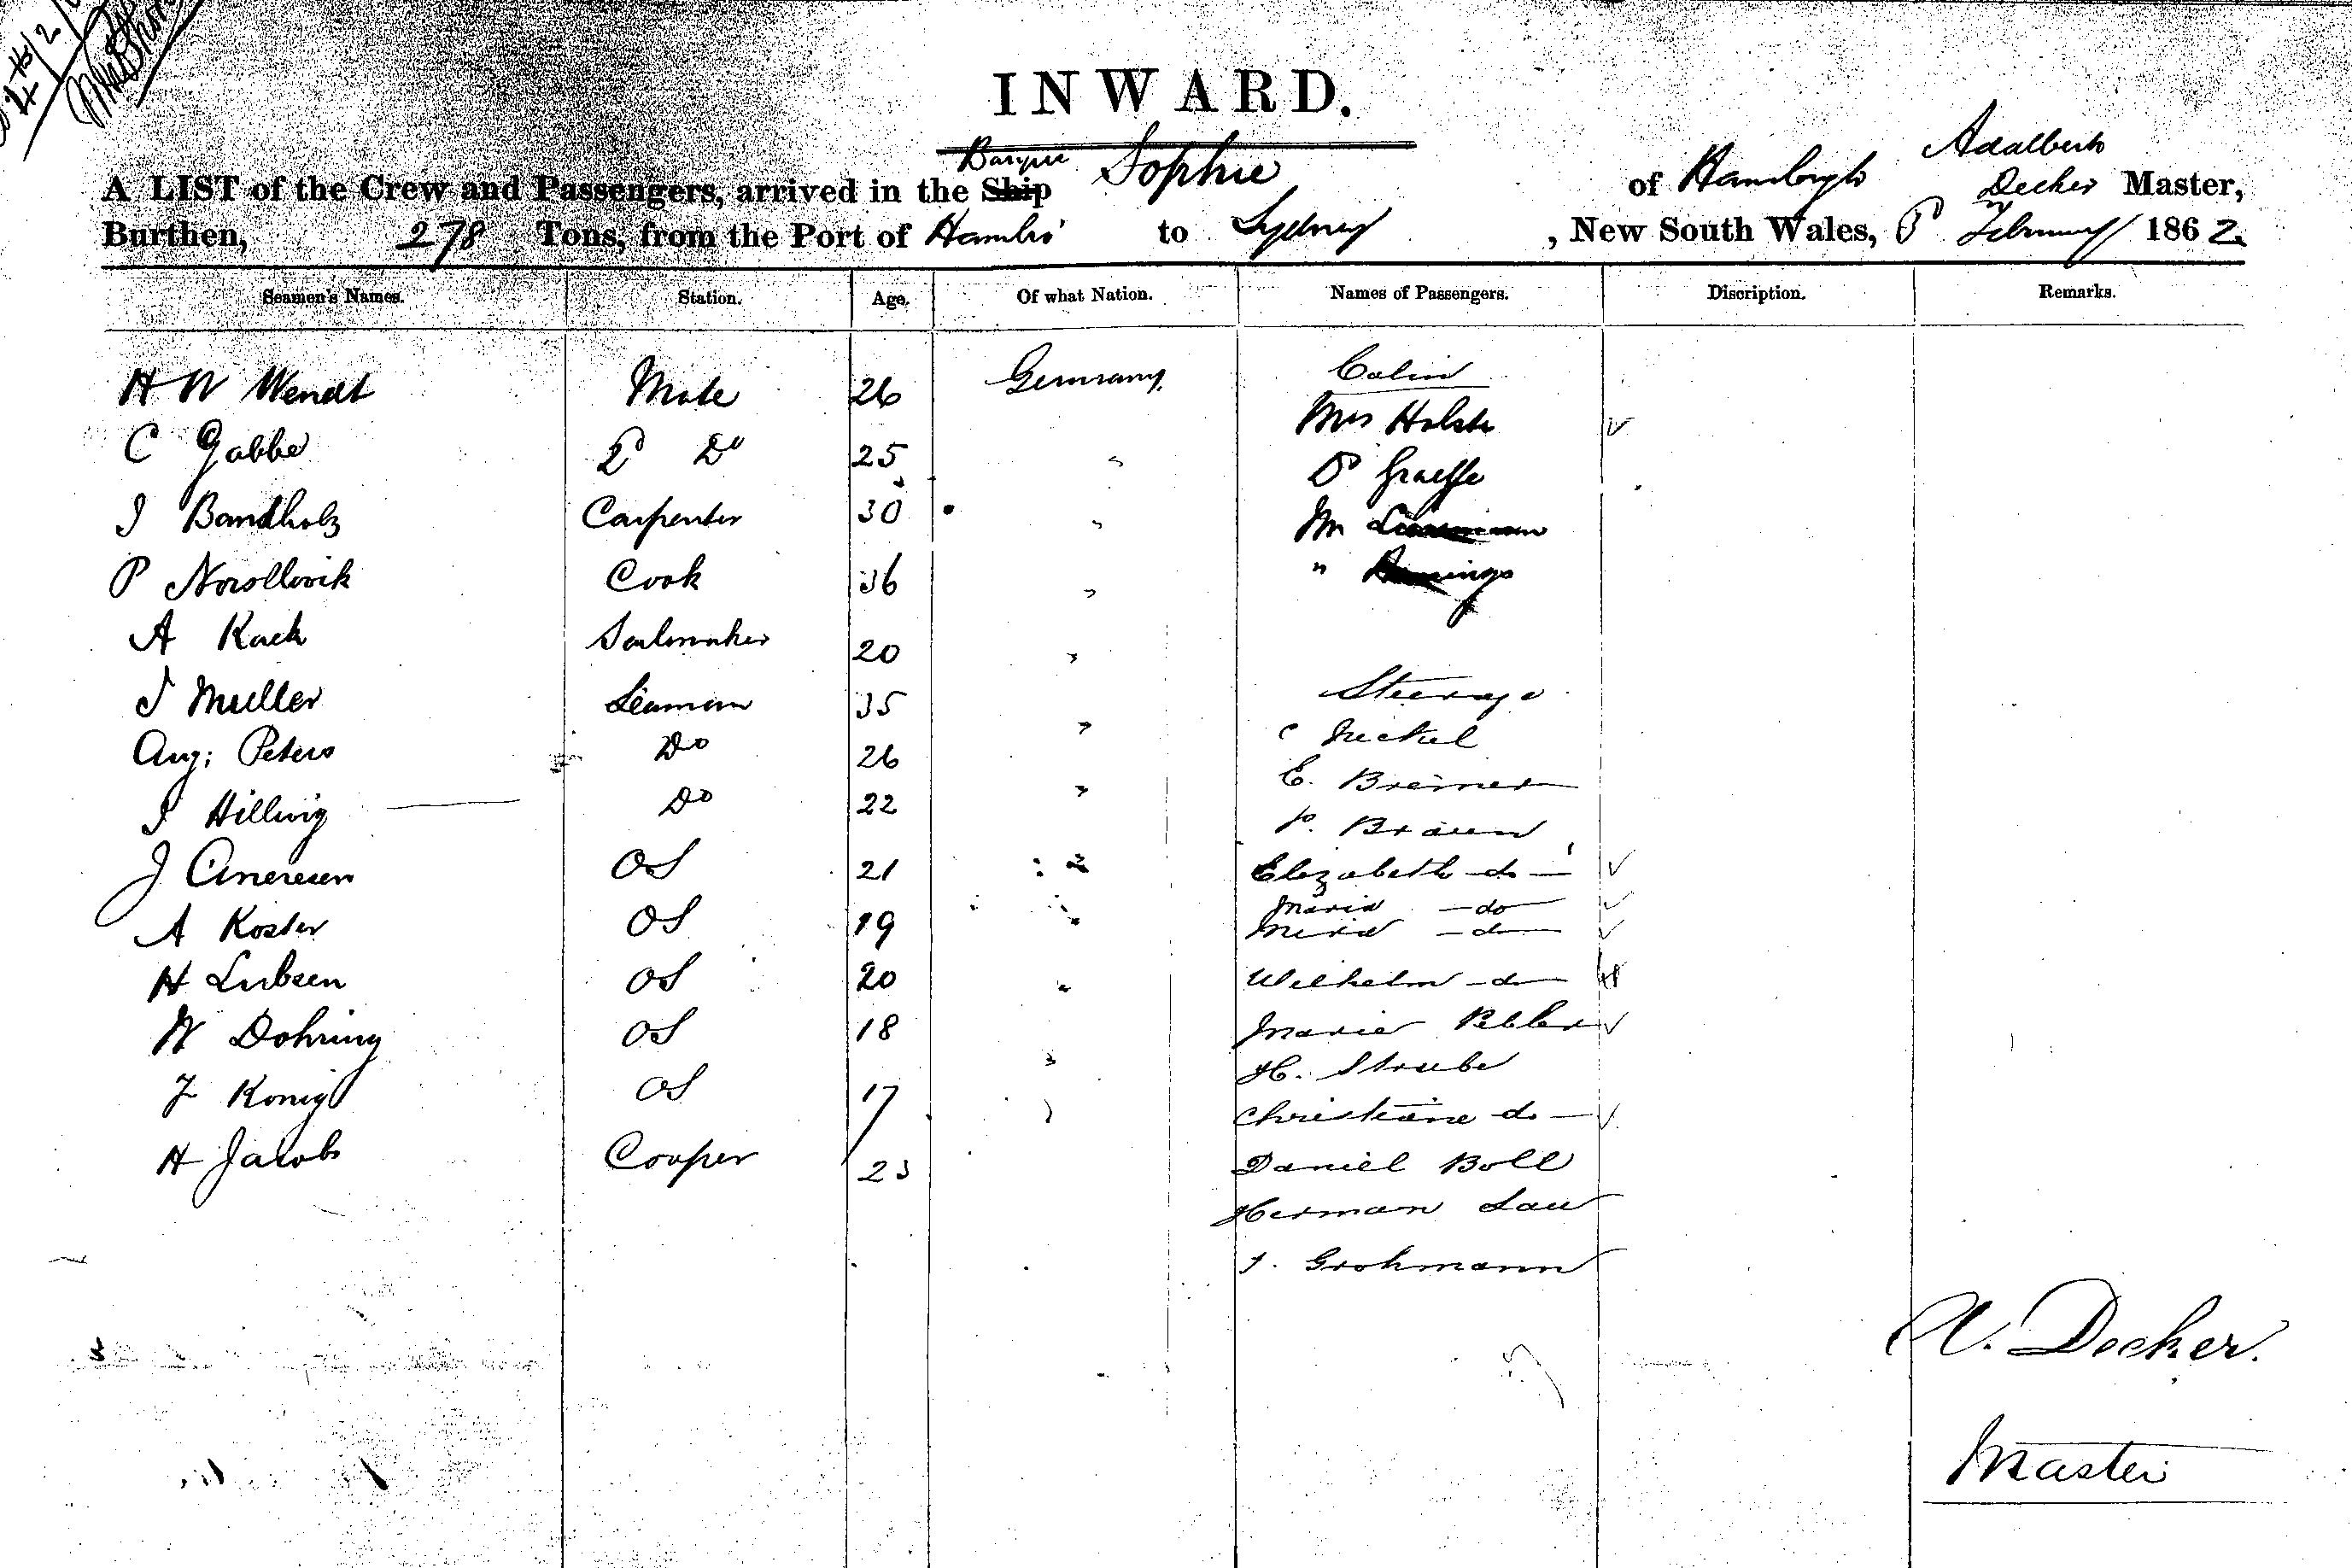 4th/2
INWARD.
A LIST of the Crew and Passengers, arrived in the Ship Barque Sophie of Hamburgh Adalbert Decker Master,
Burthen, 278 Tons, from the Port of Hambro' to Sydney, New South Wales, February 1862.
Seamen's Names. Station. Age. Of what Nation. Names of Passengers. Discription. Remarks.
H W Wendt Mate 26 Germany Cabin
Mrs Holste
C Gabbe 2d Do 25 " Dr Graeffe
J Bandholz Carpenter 30 " Mr
P Cook 36 " "
A Kack Sailmaker 20 "
J Muller Seaman 35 " Steerage
Aug: Peters Do 26 " C Nickel
J Hilling Do 22 " E. Breimer
P. Braun
J OS 21 " Elizabeth do
A Koster OS 19 " Maria do
do
H Lubsen OS 20 " Wilhelm do
W Dohring OS 18 " Marie
H. Strube
F Konig OS 17 " Christiane do
H Jacobs Cooper 23 Daniel Boll
Herman Lau
J. Grohmann
A. Decker.
Master